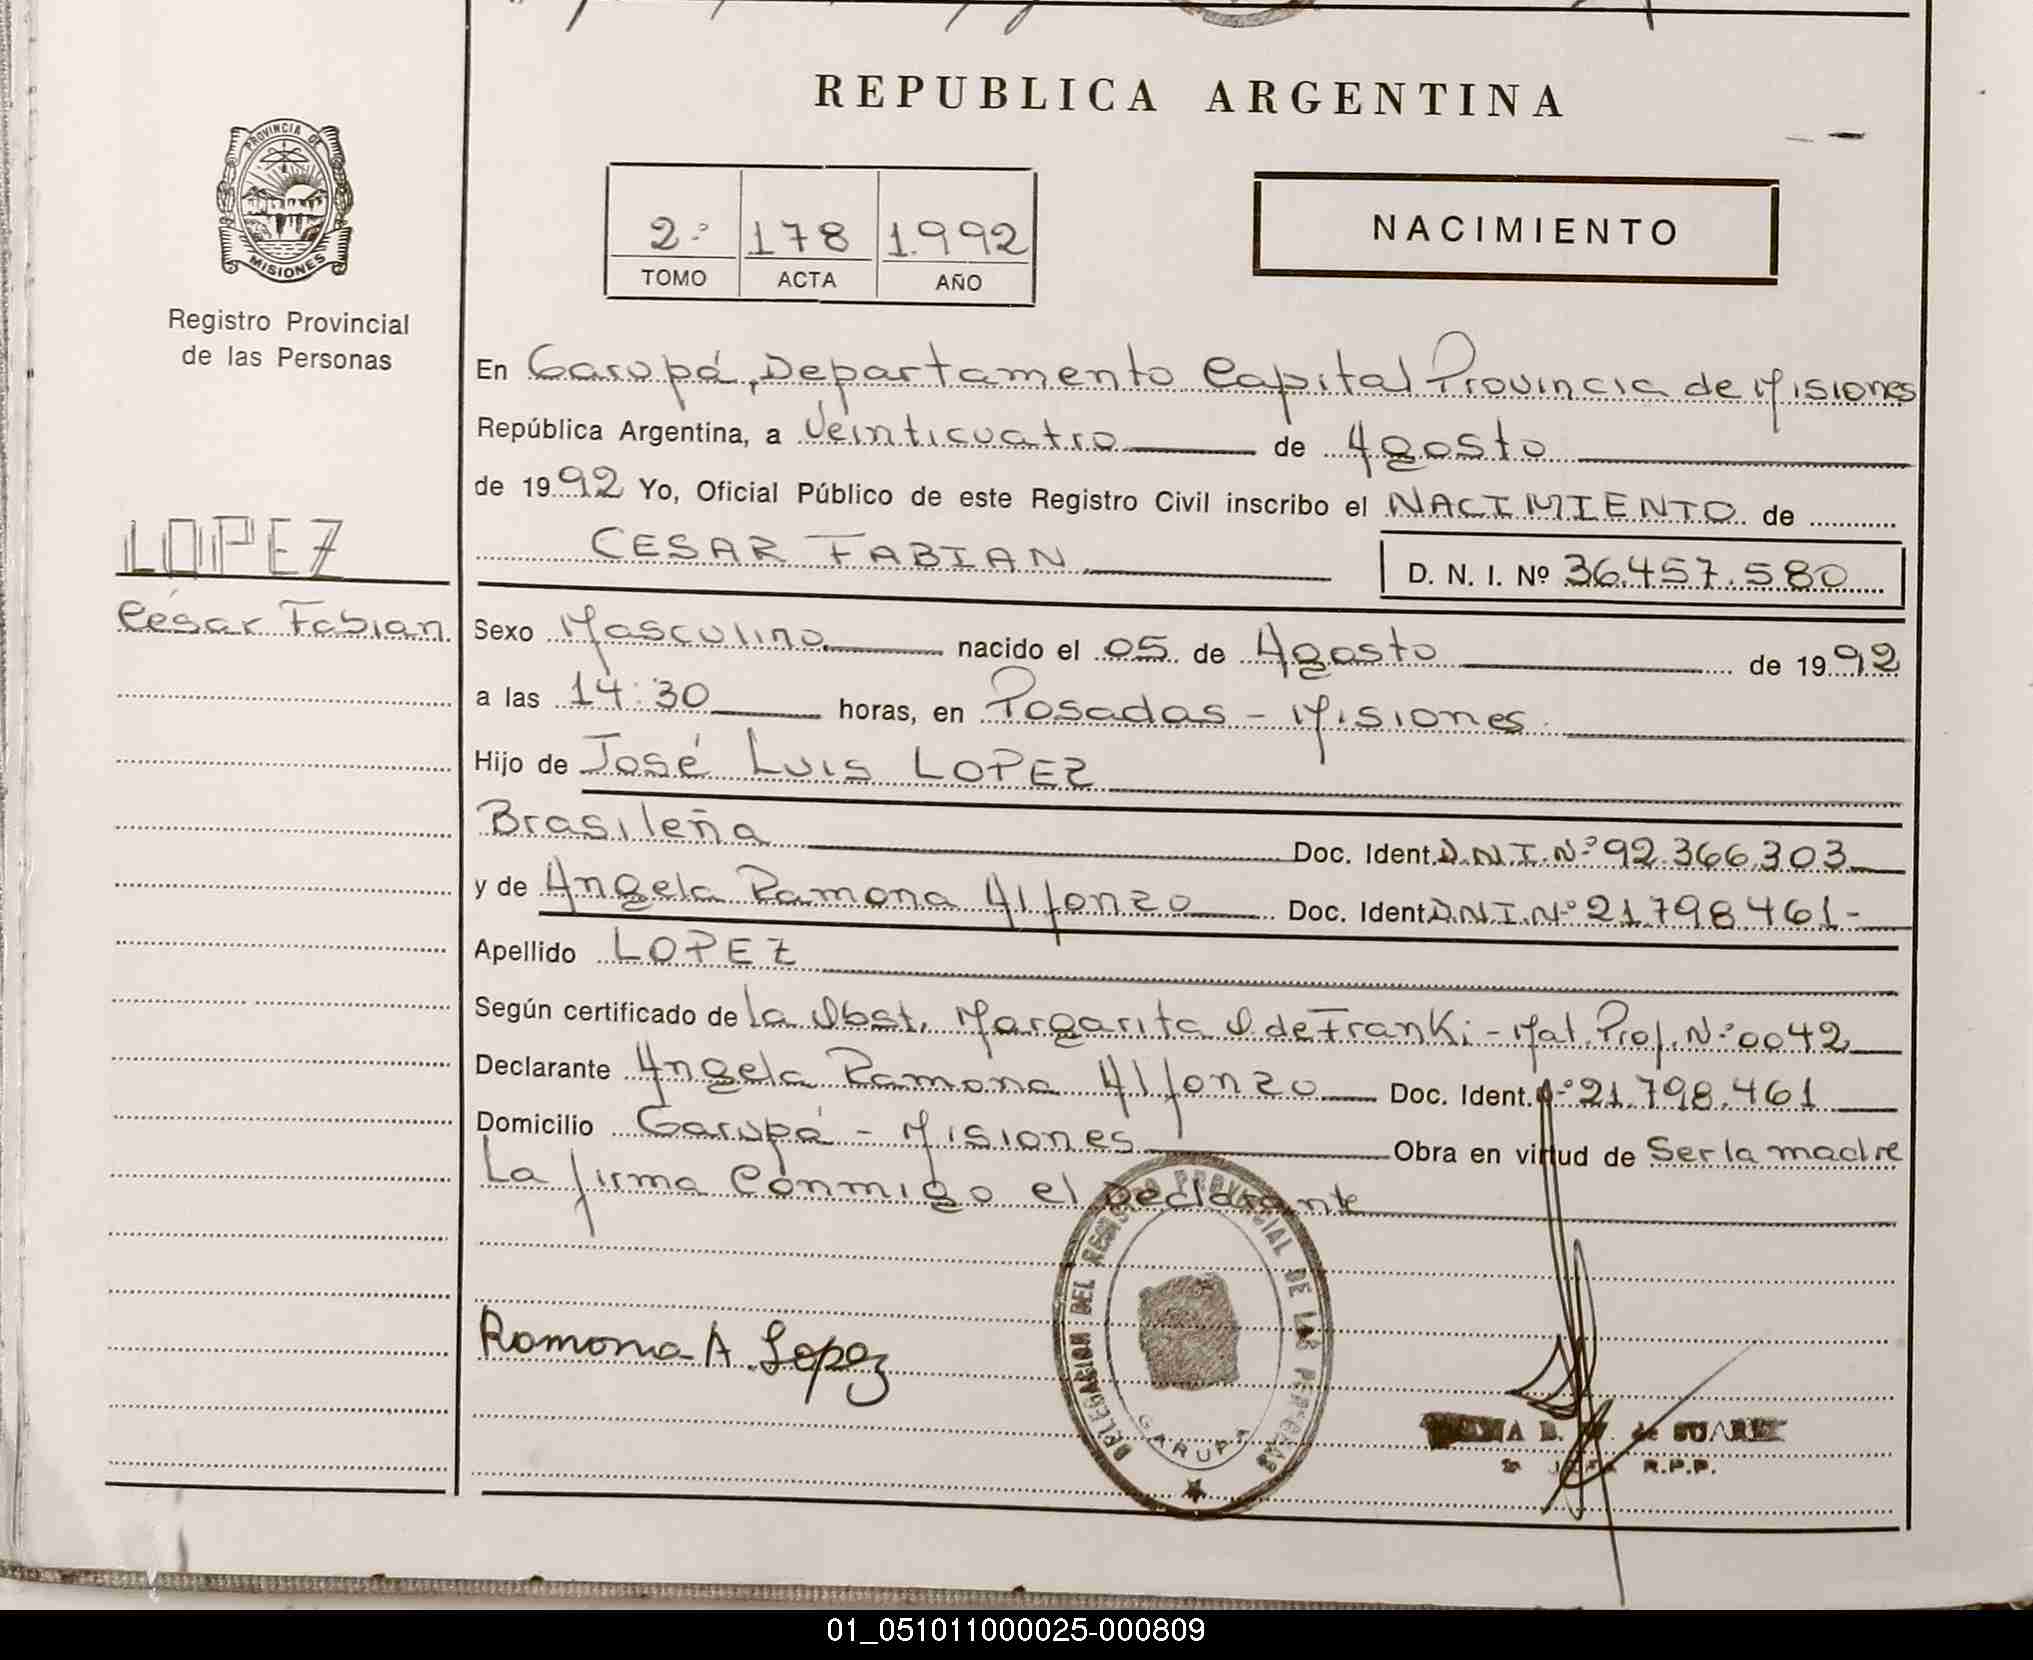 REPUBLICA ARGENTINA
PROVINCIA DE MISIONES
Registro Provincial
de las Personas
2º 178 1.992
TOMO ACTA AÑO
NACIMIENTO
En Garupá, Departamento Capital Provincia de Misiones
República Argentina, a Veinticuatro de Agosto
de 1992 Yo, Oficial Público de este Registro Civil inscribo el NACIMIENTO de
CESAR FABIAN D. N. I. Nº 36.457.580
LOPEZ
César Fabian
Sexo Masculino nacido el 05 de Agosto de 1992
a las 14:30 horas, en Posadas - Misiones
Hijo de José Luis LOPEZ
Brasileña Doc. Ident. D.N.I. Nº 92.366.303
y de Angela Ramona Alfonzo Doc. Ident. D.N.I. Nº 21.798.461-
Apellido LOPEZ
Según certificado de la Obst. Margarita O. de Franki - Mat. Prof. Nº 0042
Declarante Angela Ramona Alfonzo Doc. Ident. Nº 21.798.461
Domicilio Garupá - Misiones Obra en virtud de Ser la madre
La firma Conmigo el Declarante
DELEGACION DEL REGISTRO PROVINCIAL DE LAS PERSONAS
GARUPA
Ramona A. Lopez
de SUAREZ
R.P.P.
01_051011000025-000809